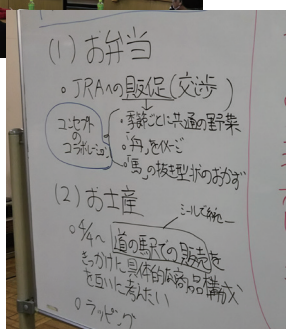 (1) お弁当
○ JRAへの販促(交渉)
コンセプトのコラボレーション
・季節ごとに共通の野菜
・「丹」をイメージ
・「馬」の抜き型状のおかず
(2) お土産
シールで統一
○ 4/4〜 道の駅での販売を
きっかけに具体的な商品構成
を互いに考えたい
○ ラッピング